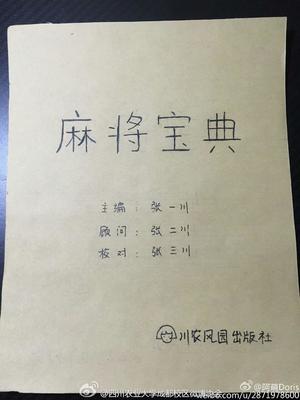 麻将宝典
主编：张一川
顾问：张二川
核对：张三川
川农风园出版社
@四川农业大学成都校区微博协会
@阿萌Doris
weibo.com/u/2871978600